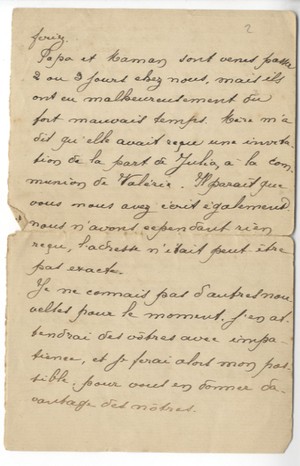 2
Papa et Maman sont venus passer
2 ou 3 jours chez nous, mais ils
ont eu malheureusement du
fort mauvais temps. Mère m'a
dit qu'elle avait reçu une invita
tion de la part de Julia, à la com
munion de Valérie. Il paraît que
vous nous avez écrit également
nous n'avons cependant rien
reçu, l'adresse n'était peut être
pas exacte.
Je ne connais pas d'autres nou
velles pour le moment, j'en at
tendrai des vôtres avec impa
tience, et je ferai alors mon pos
sible, pour vous en donner da
vantage des nôtres.